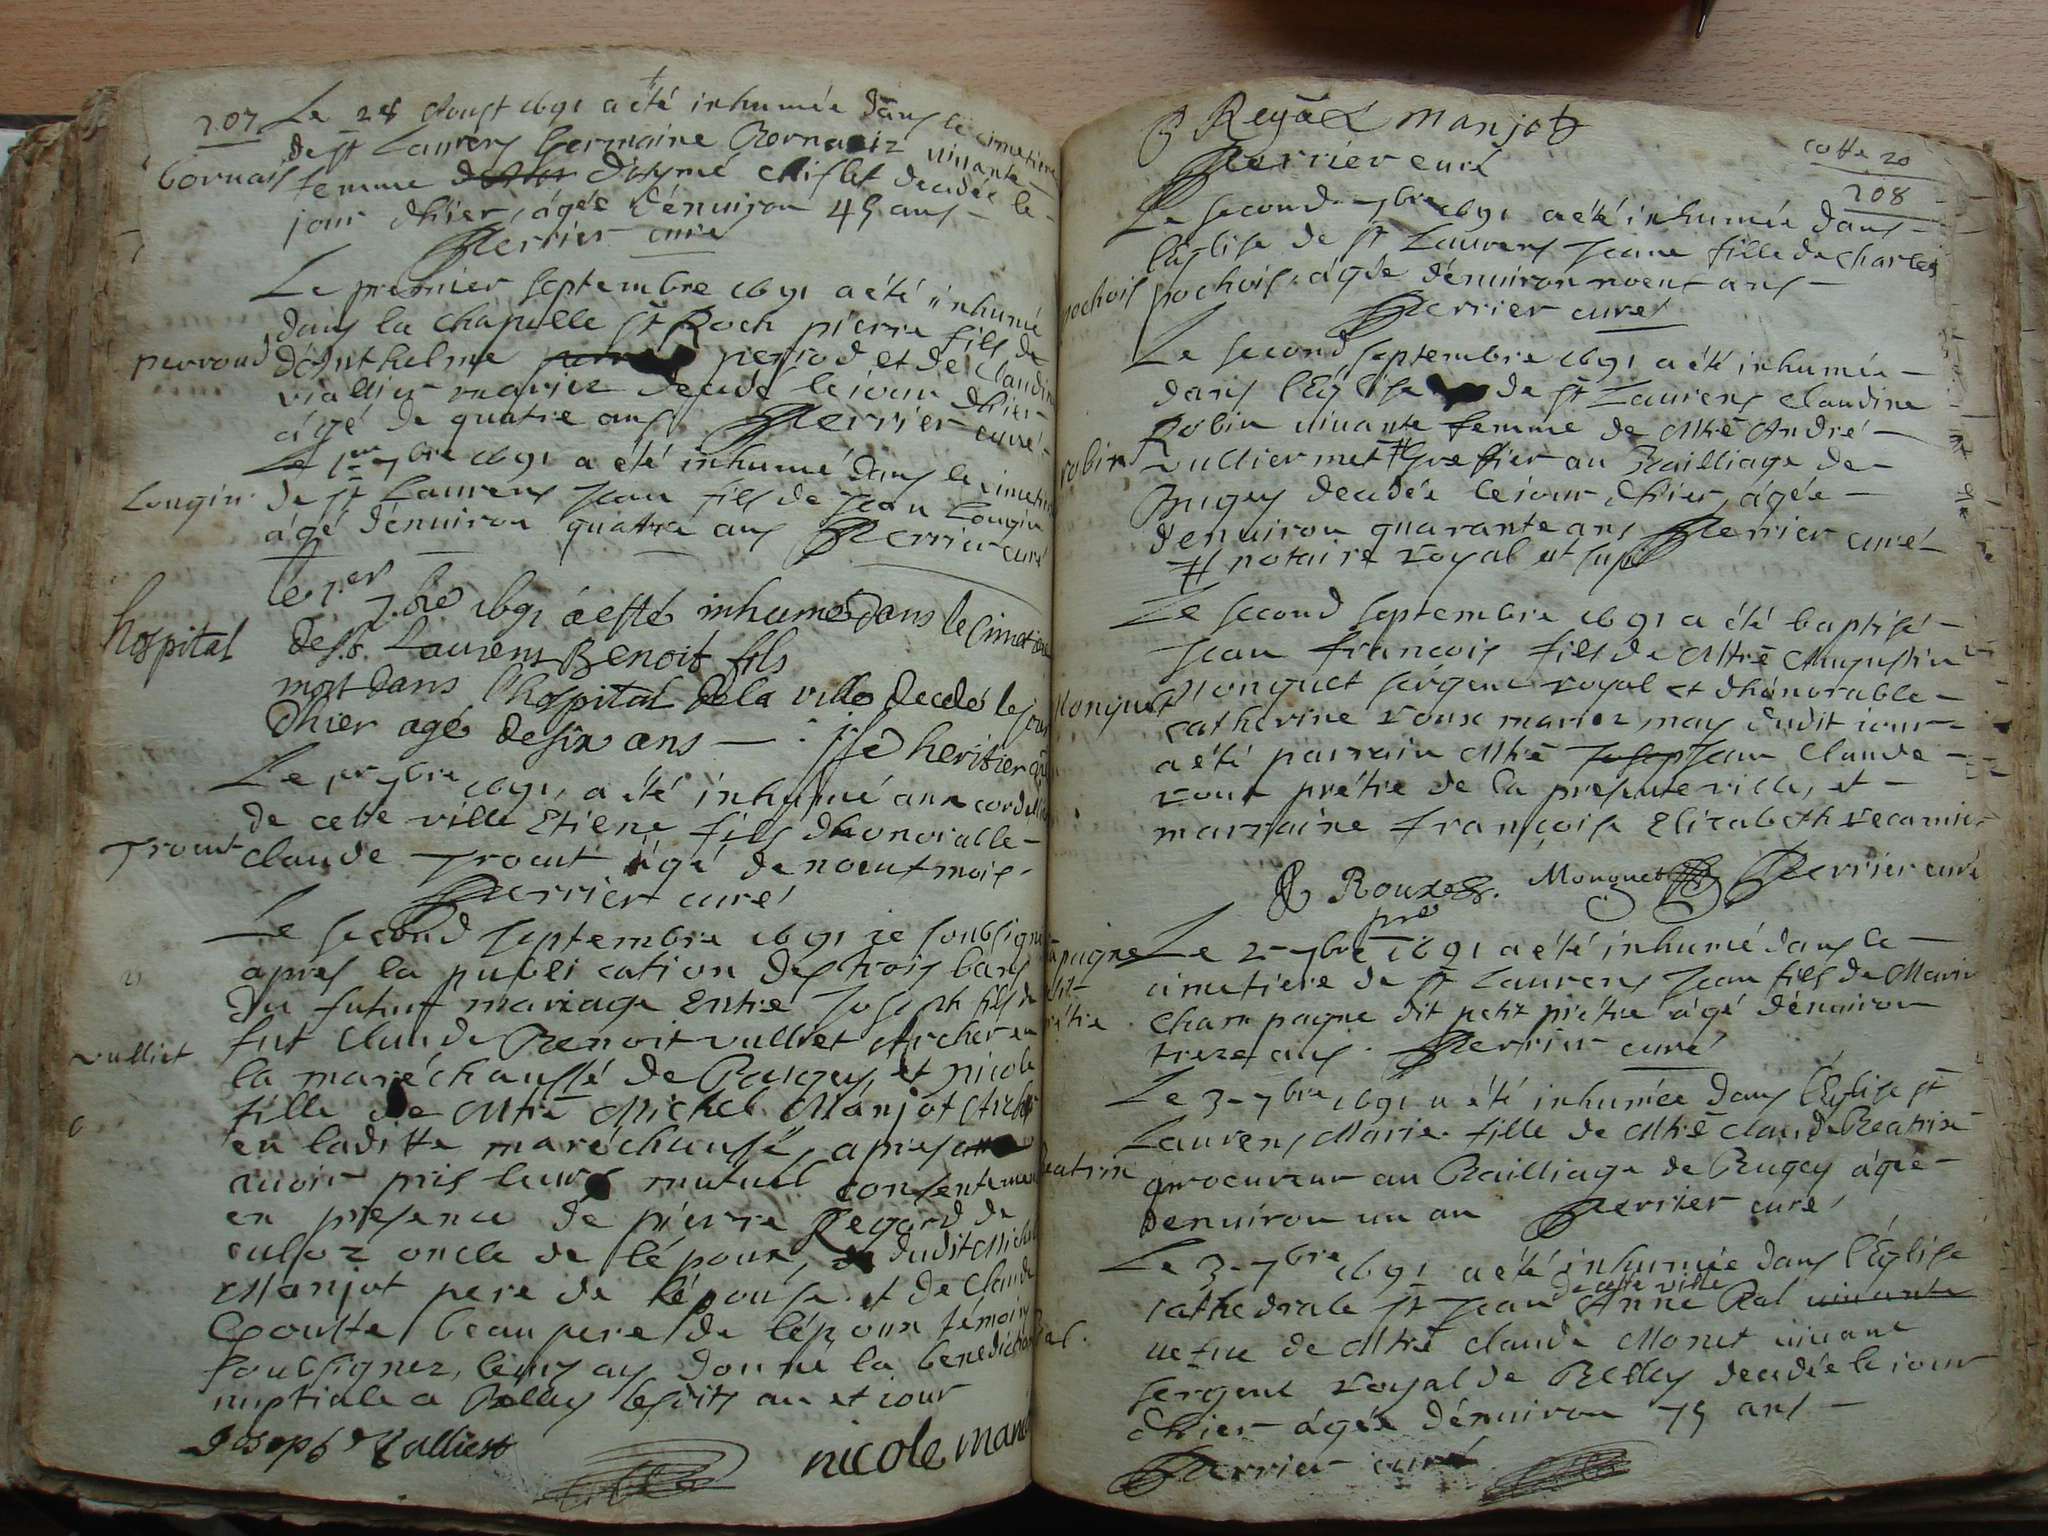 207
Le 28 Aoust 1691 a été inhumée dans le cimetiere
de st Laurens Germaine Bornariz vivante
bornaiz
femme Disymé Chiflet decedée le
jour d'hier, agée d'énuiron 45 ans
Perrier curé
Le premier septembre 1691 a été inhumé
dans la chapelle st Roch pierre fils de
perroud
d'Anthelme perrod et de Claudine
viallier mariez decedé le iour d'hier
ágé de quatre ans Perrier curé
Le 1er 7bre 1691 a été inhumé dans le cimetiere
Longin
de st Laurens Jean fils de Jean Longin
ágé d'énuiron quatre ans Perrier curé
le 1er 7.bre 1691 a esté inhumé dans le Cimetiere
hospital
de st. Laurens Benoit fils
mort dans l'hospital de la ville decedé le jour
d'hier agé de six ans heritier
Le pr 7bre 1691, a été inhumé aux cordeliers
de cette ville Etiene fils d'honorable
Trocut
claude Trocut ágé de noeuf mois
Perrier curé
Le second septembre 1691 ie soubsigné
apres la publication des trois bans
du futur mariage Entre Joseph fils de
fut Claude Benoit vulliet Archer en
vulliet
la maréchaussé de Baugey, et nicole
fille de Mtre Michel Manjot Archer
en laditte maréchaussé, apres
auoir pris leur mutuel consentement
en presence de pierre Regard de
culoz oncle de l'époux, dudit Michel
Manjot pere de l'épouse et de Claude
Coutte beau pere de l'époux témoins
soubsignez, leurs ay donné la benediction
nuptiale a Belley lesdits an et iour
Joseph Vulliest nicole man
P Regard manjot
Perrier curé
cotte 20
208
Le second 7bre 1691 a été inhumée dans
l'Eglise de st Laurens Jeane fille de Charles
pochois
pochois, ágée d'énuiron noeuf ans
Perrier curé
Le second septembre 1691 a été inhumée
dans l'Eglise de st Laurens Claudine
robin
Robin vivante femme de Mtre André
vulliermet # Greffier au Bailliage de
Bugey decedée le iour d'hier, ágée
d'enuiron quarante ans Perrier curé
# notaire royal et
Le second septembre 1691 a été baptisé
Jean François fils de Mtre Augustin
Monquet
Monquet sergent royal et d'honorable
catherine roux mariez nay dudit iour
a été parrain Mtre Jean Claude
roux prétre de la presente ville, et
marraine françoise Elizabeth recamier
Roux Monquet Perrier curé
pre
Le 2 7bre 1691 a été inhumé dans le
cimetiere de st Laurens Jean fils de Marin
Champagne dit petit prétre ágé d'énuiron
treze ans. Perrier curé
Le 3 7bre 1691 a été inhumée dans l'Eglise st
Laurens Marie fille de Mtre Claude Beatrix
procureur au Bailliage de Bugey ágée
d'enuiron un an Perrier curé
Le 3 7bre 1691 a été inhumée dans l'Église
de cette ville
cathedrale st Jean Anne Bal vivante
uefue de Mtre Claude Monet vivant
sergent royal de Belley decedée le iour
d'hier ágée d'énuiron 75 ans
Perrier curé